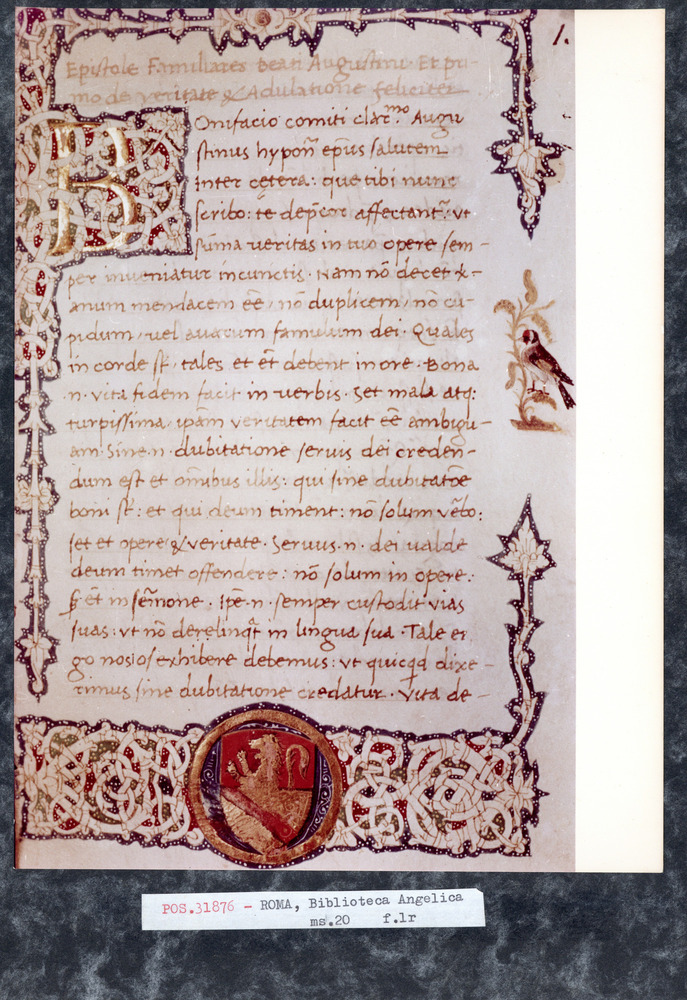 1.
Epistole Familiares beati Augustini. Et pri-
mo de veritate & Adulatione feliciter
BOnifacio comiti clar.mo Augu
stinus hypoñ ep̃us salutem
Inter cętera: que tibi nunc
scribo: te dep̃cor affectant̃: vt
sũma veritas in tuo opere sem-
per inueniatur incunctis. Nam nõ decet x-
anum mendacem ẽe, nõ duplicem, nõ cu-
pidum, vel auarum famulum dei. Quales
in corde st̃. tales et ẽt debent in ore. Bona
.n. vita fidem facit in uerbis. Set mala atq:
turpissima. ip̃am veritatem facit ẽe ambigu-
am. Sine .n. dubitatione seruis dei creden-
dum est et om̃ibus illis: qui sine dubitatõe
boni st̃: et qui deum timent: nõ solum vẽbo:
set et opere & veritate. Seruus .n. dei ualde
deum timet offendere: nõ solum in opere:
ẽt in sẽmone. Ip̃e .n. semper custodit vias
suas: vt nõ derelinqt̃ in lingua sua. Tale er
go nosiosexhibere debemus: vt quicqd dixe-
rimus sine dubitatione credatur. Vita de-
POS.31876 - ROMA, Biblioteca Angelica
ms.20 f.1r